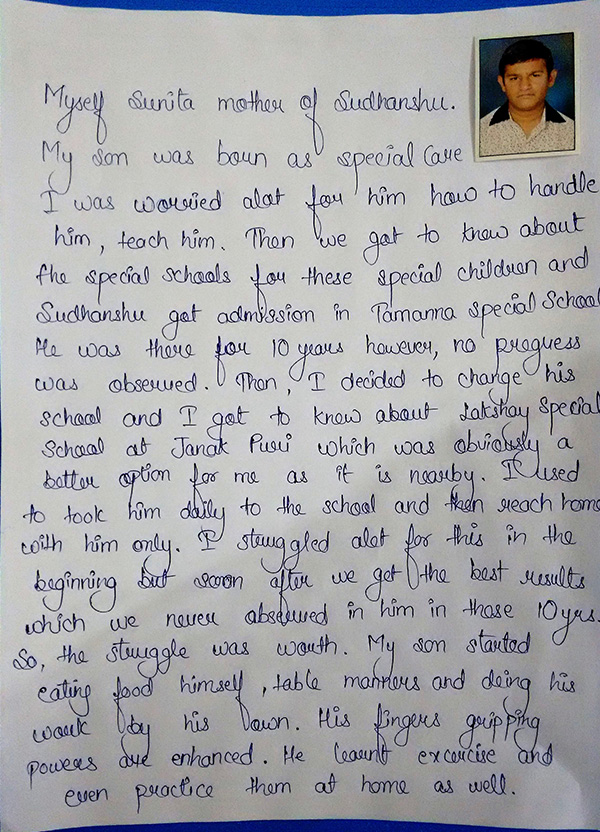 Myself Sunita mother of Sudhanshu.
My son was born as special care
I was worried alot for him how to handle
him, teach him. Then we got to know about
the special schools for these special children and
Sudhanshu got admission in Tamanna Special School
He was there for 10 years however, no proguess
was observed. Then, I decided to change his
school and I got to know about Lakshay Special
School at Janak Puri which was obviously a
better option for me as it is nearby. I used
to took him daily to the school and then reach home
with him only. I struggled alot for this in the
beginning but soon after we get the best results
which we never observed in him in those 10yrs.
So, the struggle was worth. My son started
eating food himself, table manners and doing his
work by his own. His fingers gripping
powers are enhanced. He learnt excercise and
even practice them at home as well.